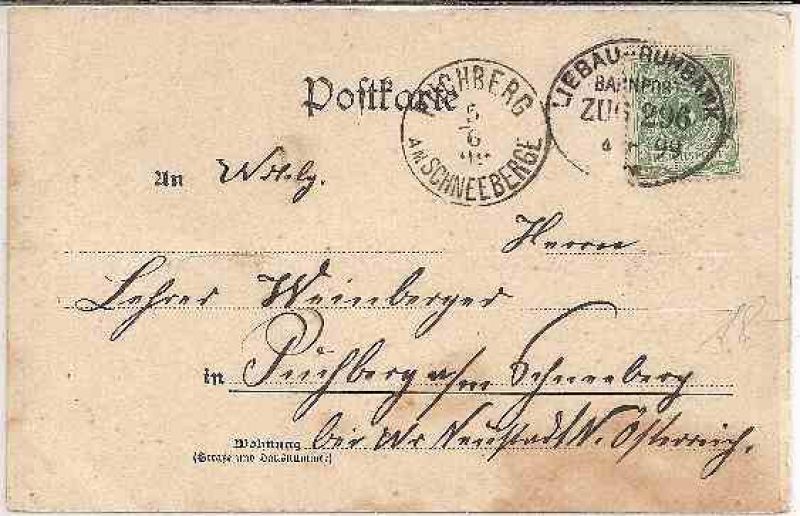 Postkarte
PUCHBERG
5
6
AM SCHNEEBERGE
LIEBAU-RUHBANK
BAHNPOST
ZUG 296
4 99
An Wohlg.
Herrn
Lehrer Weinberger
in Puchberg a/m Schneeberg
Wohnung bei Wr Neustadt N. Österreich.
(Straße und Hausnummer)